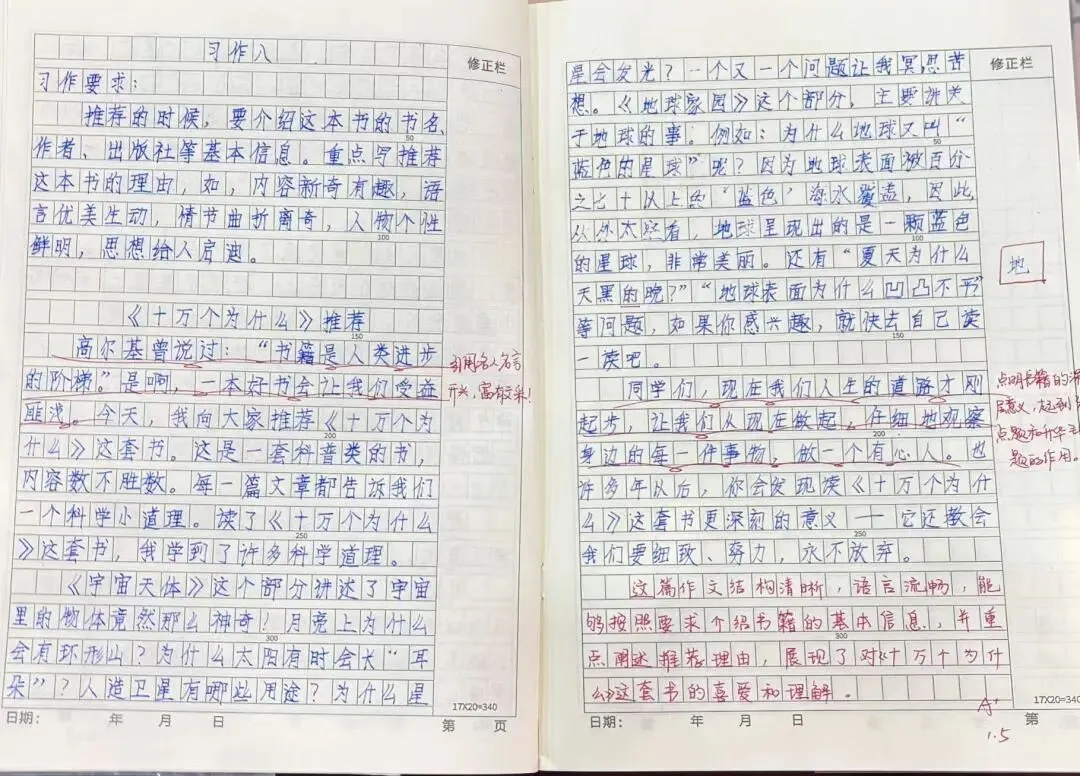 习作八
修正栏
习作要求：
推荐的时候，要介绍这本书的书名、
50
作者、出版社等基本信息。重点写推荐
这本书的理由，如，内容新奇有趣，语
言优美生动，情节曲折离奇，人物个性
100
鲜明，思想给人启迪。
《十万个为什么》推荐
150
高尔基曾说过：“书籍是人类进步
的阶梯。”是啊，一本好书会让我们受益
引用名人名言
开头，富有文采！
匪浅。今天，我向大家推荐《十万个为
200
什么》这套书。这是一套科普类的书，
内容数不胜数。每一篇文章都告诉我们
一个科学小道理。读了《十万个为什么
250
》这套书，我学到了许多科学道理。
《宇宙天体》这个部分讲述了宇宙
里的物体竟然那么神奇？月亮上为什么
300
会有环形山？为什么太阳有时会长“耳
朵”？人造卫星有哪些用途？为什么星
17X20=340
日期： 年 月 日 第 页
修正栏
星会发光？一个又一个问题让我冥思苦
想。《地球家园》这个部分，主要讲关
于地球的事。例如：为什么地球又叫“
50
蓝色的星球”呢？因为地球表面被百分
之七十以上的‘蓝色’海水覆盖，因此，
从外太空看，地球呈现出的是一颗蓝色
100
的星球，非常美丽。还有“夏天为什么
地
天黑的晚？”“地球表面为什么凹凸不平”
等问题，如果你感兴趣，就快去自己读
150
一读吧。
同学们，现在我们人生的道路才刚
起步，让我们从现在做起，仔细地观察
200
身边的每一件事物，做一个有心人。也
点明书籍的深
层意义，起到
点题和升华主
题的作用。
许多年以后，你会发现读《十万个为什
么》这套书更深刻的意义——它还教会
250
我们要细致、努力，永不放弃。
这篇作文结构清晰，语言流畅，能
够按照要求介绍书籍的基本信息，并重
300
点阐述推荐理由，展现了对《十万个为什
么》这套书的喜爱和理解。
A+
1.5
17X20=340
日期： 年 月 日 第